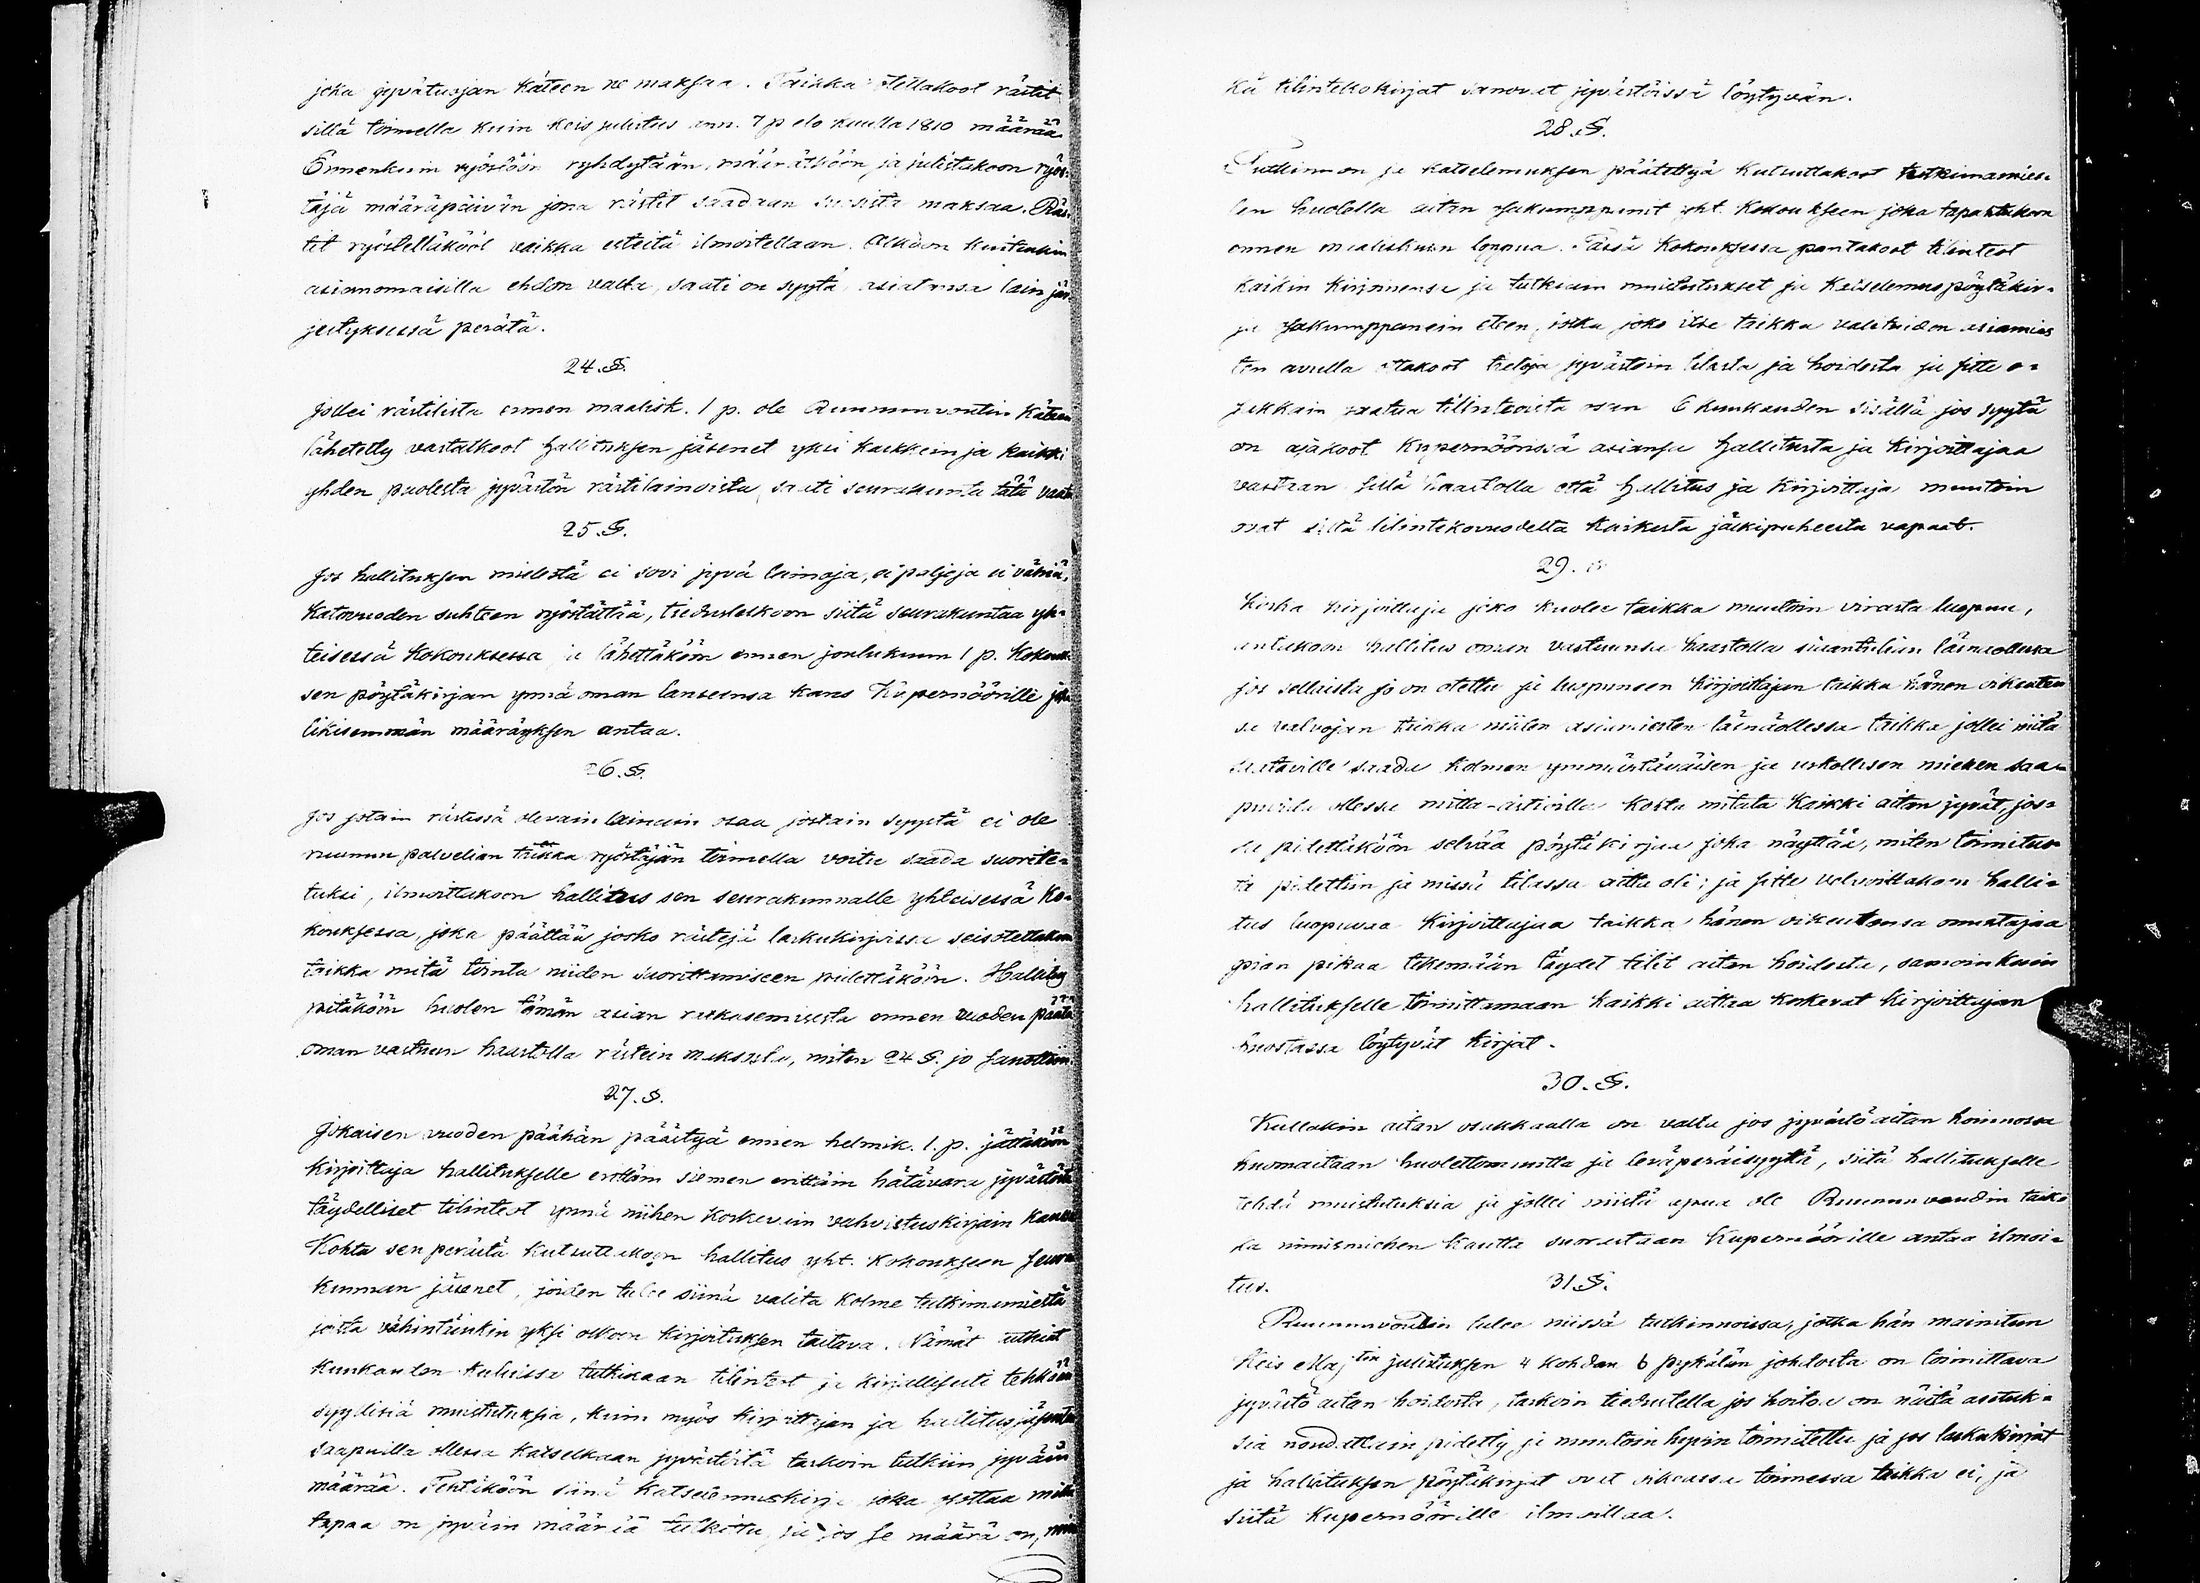 joka jyvätusjan käteen ne maksaa. Taikka otettakoot rästit
sillä toimella kuin Keis julistus ann. 7 p elo kuulla 1810 määrää.
Ennenkuin ryöstöön ryhdytään, määrätköön ja julistakoon ryös-
täjä määräpäivän jona rästit saadaan suosista maksaa. Räs-
tit ryöstettäkööt vaikka esteitä ilmoitellaan. Olkoon kuitenkin
asianomaisilla ehdon valta, saati on syytä, asiatansa lain jär-
jestyksessä perätä.
24.§.
Jollei rästilista ennen maalisk. 1 p. ole Ruununvoutin käteen
lähetetty vastatkoot hallituksen jäsenet yksi kaikkein ja kaikki
yhden puolesta jyvästön rästilainoista, saati seurakunta tätä vaatii
25.§.
Jos hallituksen mielestä ei sovi jyvä lainoja, ei paljoja ei vähiä,
katovuoden suhteen ryöstättää, tiedusteskoon siitä seurakuntaa yh-
teisessä kokouksessa ja lähettäköön ennen joulukuun 1 p. kokouk-
sen pöytäkirjan ynnä oman lauseensa kans Kupernöörille joka
likisemmän määräyksen antaa.
26.§.
Jos jotain rästissä olevain lainain osaa jostain syystä ei ole
ruunun palvelian taikka ryöstäjän toimella voitu saada suorite-
tuksi, ilmoittakoon hallitus sen seurakunnalle yhteisessä ko-
kouksessa, joka päättää josko rästejä laskukirjoissa seisotettakoon
taikka mitä tointa niiden suorittamiseen pidettäköön. Hallitus
pitäköön huolen tämän asian ratkasemisesta ennen vuoden päätä
oman vastuun haastolla rästein maksusta, miten 24 §. jo sanottiin.
27.§.
Jokaisen vuoden päähän päästyä ennen helmik. 1. p. jättäköön
kirjoittaja hallitukselle erittäin siemen erittäin hätävara jyvästöstä
täydelliset tilinteot ynnä niihen koskevain vahvistuskirjain kanssa
Kohta sen perästä kutsuttakoon hallitus yht. kokoukseen seura-
kunnan jäsenet, joiden tulee siinä valita kolme tutkimamiestä
joista vähintäinkin yksi olkoon kirjoituksen taitava. Nämät
kuukauden kuluissa tutkikaan tilinteot ja kirjallisesti tehköön
syyllisiä muistutuksia, kuin myös kirjoittajan ja hallitusjäsenten
saapuilla ollessa katselkaan jyvästöitä tarkoin tutkiin jyväin
määrää. Tehtäköön siinä katselemuskirja joka osottaa mitä
tapaa on jyväin määriä tutkittu, ja jos se määrä on, min-
kä tilintekokirjat sanovat jyvästöissä löytyvän.
28.§.
Tutkinnon ja katselemuksen päätettyä kutsuttakoot tutkimamies-
ten huolella aitan osakumppanit yht. kokoukseen joka tapahtukoon
ennen maaliskuun loppua. Tässä kokouksessa pantakoot tilinteot
kaikin kirjoinensa ja tutkiain muistutukset ja katselemuspöytäkir-
ja osakumppanein eteen, jotka joko itse taikka valittuidon asiamies
ten avulla ottakoot tietoja jyvästöin tilasta ja hoidosta ja sitte o-
sakkain vaatia tilinteoista osan 6 kuukauden sisällä jos syytä
on ajakoot Kupernöörissä asiansa hallitusta ja kirjoittajaa
vastaan sillä haastolla että hallitus ja kirjoittaja muutoin
ovat siitä tilintekovuodelta kaikesta jälkipuheesta vapaat.
29. §
Koska kirjoittaja joko kuolee taikka muutoin virasta luopuu,
antakoon hallitus oman vastuunsa haastolla siaantulian läsnäollessa
jos sellaista jo on otettu ja luopuneen kirjoittajan taikka hänen oikeuten
sa valvojan taikka niiden asiamiesten läsnäollessa taikka jollei niitä
saataville saada kolmen ymmärtäväisen ja uskollisen miehen saa-
puvilla ollessa mitta-astioilla kohta mitata kaikki aitan jyvät, jos-
ta pidettäköön selvää pöytäkirjaa joka näyttää, miten toimitus-
ta pidettiin ja missä tilassa aitta oli; ja sitte velvoittakoon halli-
tus luopuvaa kirjoittajaa taikka hänen oikeutensa omistajaa
pian pikaa tekemään täydet tilit aitan hoidosta, samoin kuin
hallitukselle toimittamaan kaikki aittaa koskevat kirjoittajan
huostassa löytyvät kirjat.
30.§.
Kullakin aitan osakkaalla on valta jos jyvästöaitan hoinnossa
huomaitaan huolettomuutta ja leväperäisyyttä, siitä hallitukselle
tehdä muistutuksia ja jollei niistä apua ole Ruununvoudin taik-
ka nimismiehen kautta suorastaan Kupernöörille antaa ilmoi-
tus.
31.§.
Ruununvoutin tulee niissä tutkinnoissa, jotka hän mainitun
Keis Maj:tin julistuksen 4 kohdan 6 pykälän johdosta on toimittava
jyvästöaitan hoidosta, tarkoin tiedustella jos hoitoa on näitä asetuk-
sia noudattain pidetty ja muutoin hyvin toimitettu ja jos laskukirjat
ja hallituksen pöytäkirjat ovat oikeassa toimessa taikka ei, ja
siitä Kupernöörille ilmoittaa.